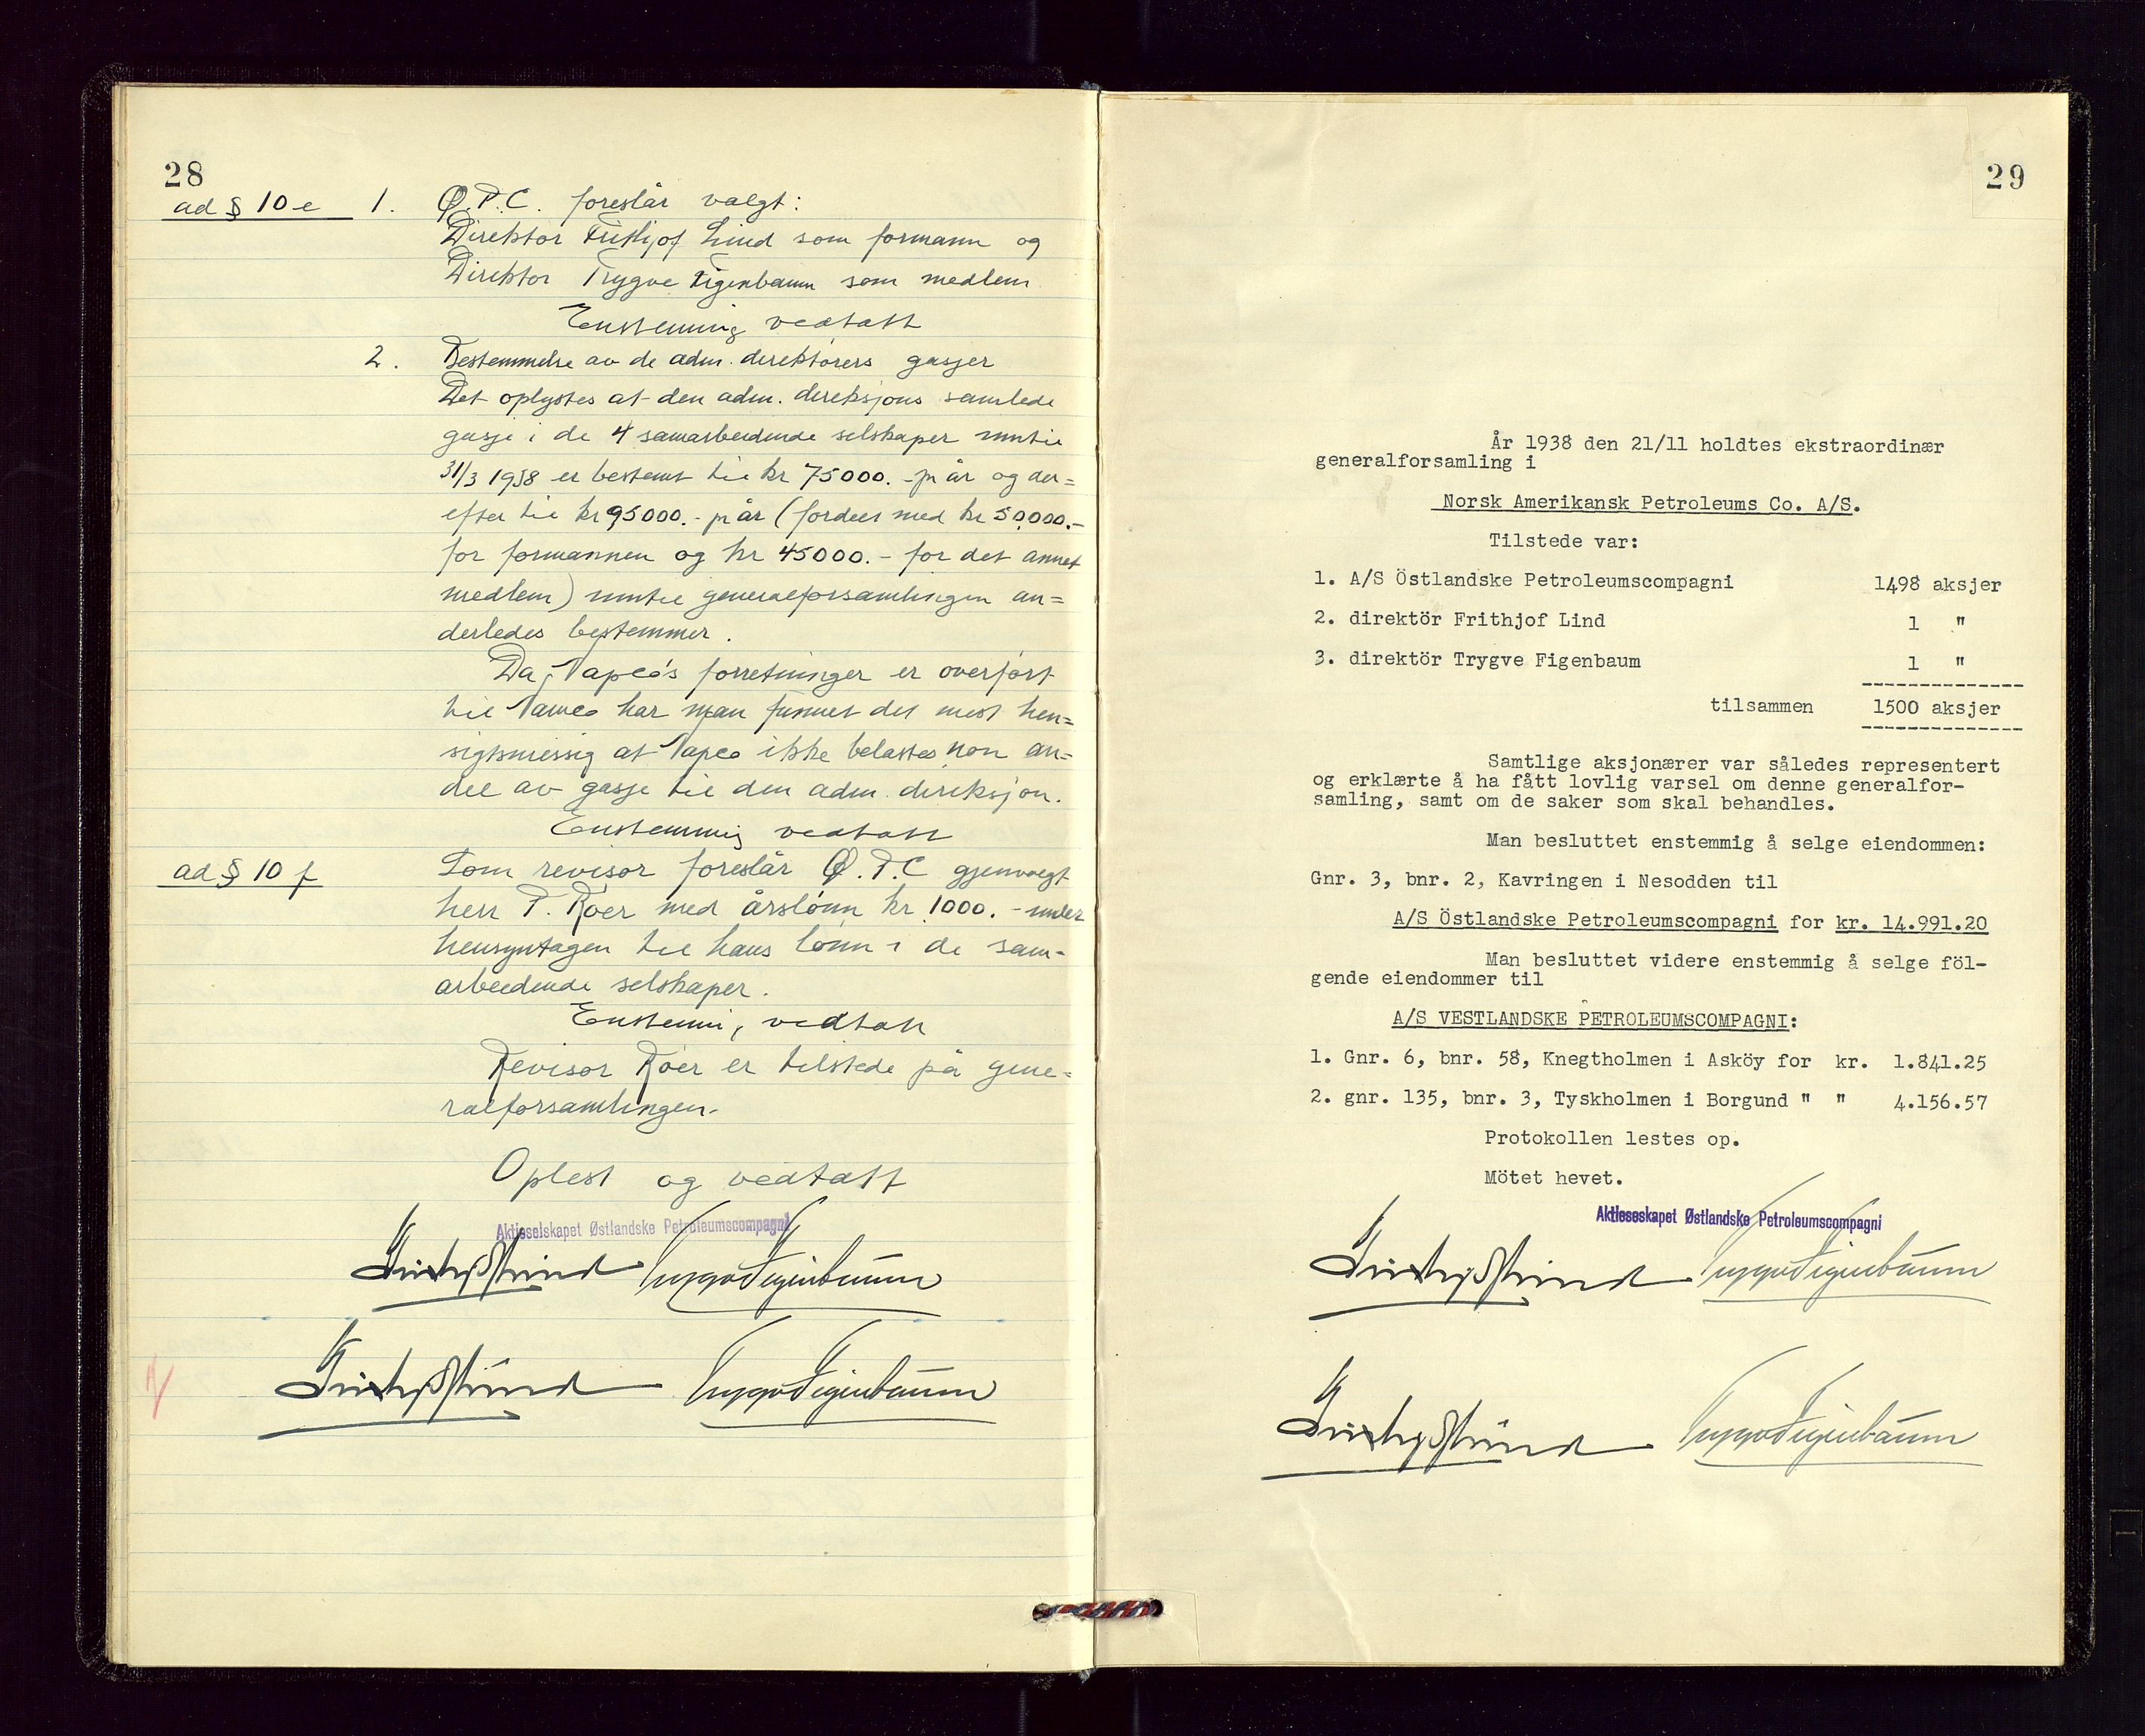 28
ad § 10 e 1. Ø.P.C. foreslår valgt:
Direktør Frithjof Lind som formann og
Direktør Trygve Figenbaum som medlem
Enstemmig vedtatt
2. Bestemmelse av de adm. direktørers gasjer
Det oplystes at den adm. direksjons samlede
gasje i de 4 samarbeidende selskaper inntil
31/3 1938 er bestemt til kr 75000.- pr år og der=
efter til kr 95000.- pr år (fordelt med kr 50.000.-
for formannen og kr 45000.- for det annet
medlem) inntil generalforsamlingen an=
derledes bestemmer.
Da Napco's forretninger er overført
til Namco har man funnet det mest hen=
sigtsmessig at Napco ikke belastes non an=
del av gasje til den adm. direksjon.
Enstemmig vedtatt
ad § 10 f Som revisor foreslår Ø.P.C gjenvalgt
herr P. Røer med årslønn kr 1000.- under
hensyntagen til hans lønn i de sam-
arbeidende selskaper.
Enstemmig vedtatt
Revisor Røer er tilstede på gene=
ralforsamlingen.
Oplest og vedtatt
Aktieselskapet Østlandske Petroleumscompagni
Frithjof Lind Trygve Figenbaum
Frithjof Lind Trygve Figenbaum
29
År 1938 den 21/11 holdtes ekstraordinær
generalforsamling i
Norsk Amerikansk Petroleums Co. A/S.
Tilstede var:
1. A/S Östlandske Petroleumscompagni 1498 aksjer
2. direktör Frithjof Lind 1 "
3. direktör Trygve Figenbaum 1 "
tilsammen 1500 aksjer
Samtlige aksjonærer var således representert
og erklærte å ha fått lovlig varsel om denne generalfor-
samling, samt om de saker som skal behandles.
Man besluttet enstemmig å selge eiendommen:
Gnr. 3, bnr. 2, Kavringen i Nesodden til
A/S Östlandske Petroleumscompagni for kr. 14.991.20
Man besluttet videre enstemmig å selge föl-
gende eiendommer til
A/S VESTLANDSKE PETROLEUMSCOMPAGNI:
1. Gnr. 6, bnr. 58, Knegtholmen i Asköy for kr. 1.841.25
2. gnr. 135, bnr. 3, Tyskholmen i Borgund " " 4.156.57
Protokollen lestes op.
Mötet hevet.
Aktieseskapet Østlandske Petroleumscompagni
Frithjof Lind Trygve Figenbaum
Frithjof Lind Trygve Figenbaum